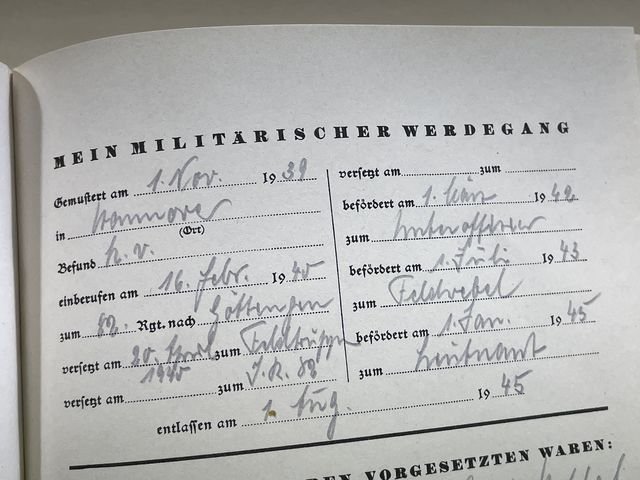 MEIN MILITÄRISCHER WERDEGANG
Gemustert am 1. Nov. 1939
in Hannover
(Ort)
Befund k. v.
einberufen am 16. Febr. 1940
zum 82. Rgt. nach Göttingen
versetzt am 20. April 1940 zum Feldtruppe
versetzt am zum I.R. 82
versetzt am zum
befördert am 1. März 1942
zum Unteroffizier
befördert am 1. Juli 1943
zum Feldwebel
befördert am 1. Jan. 1945
zum Leutnant
entlassen am 1. Aug. 1945
VORGESETZTEN WAREN: